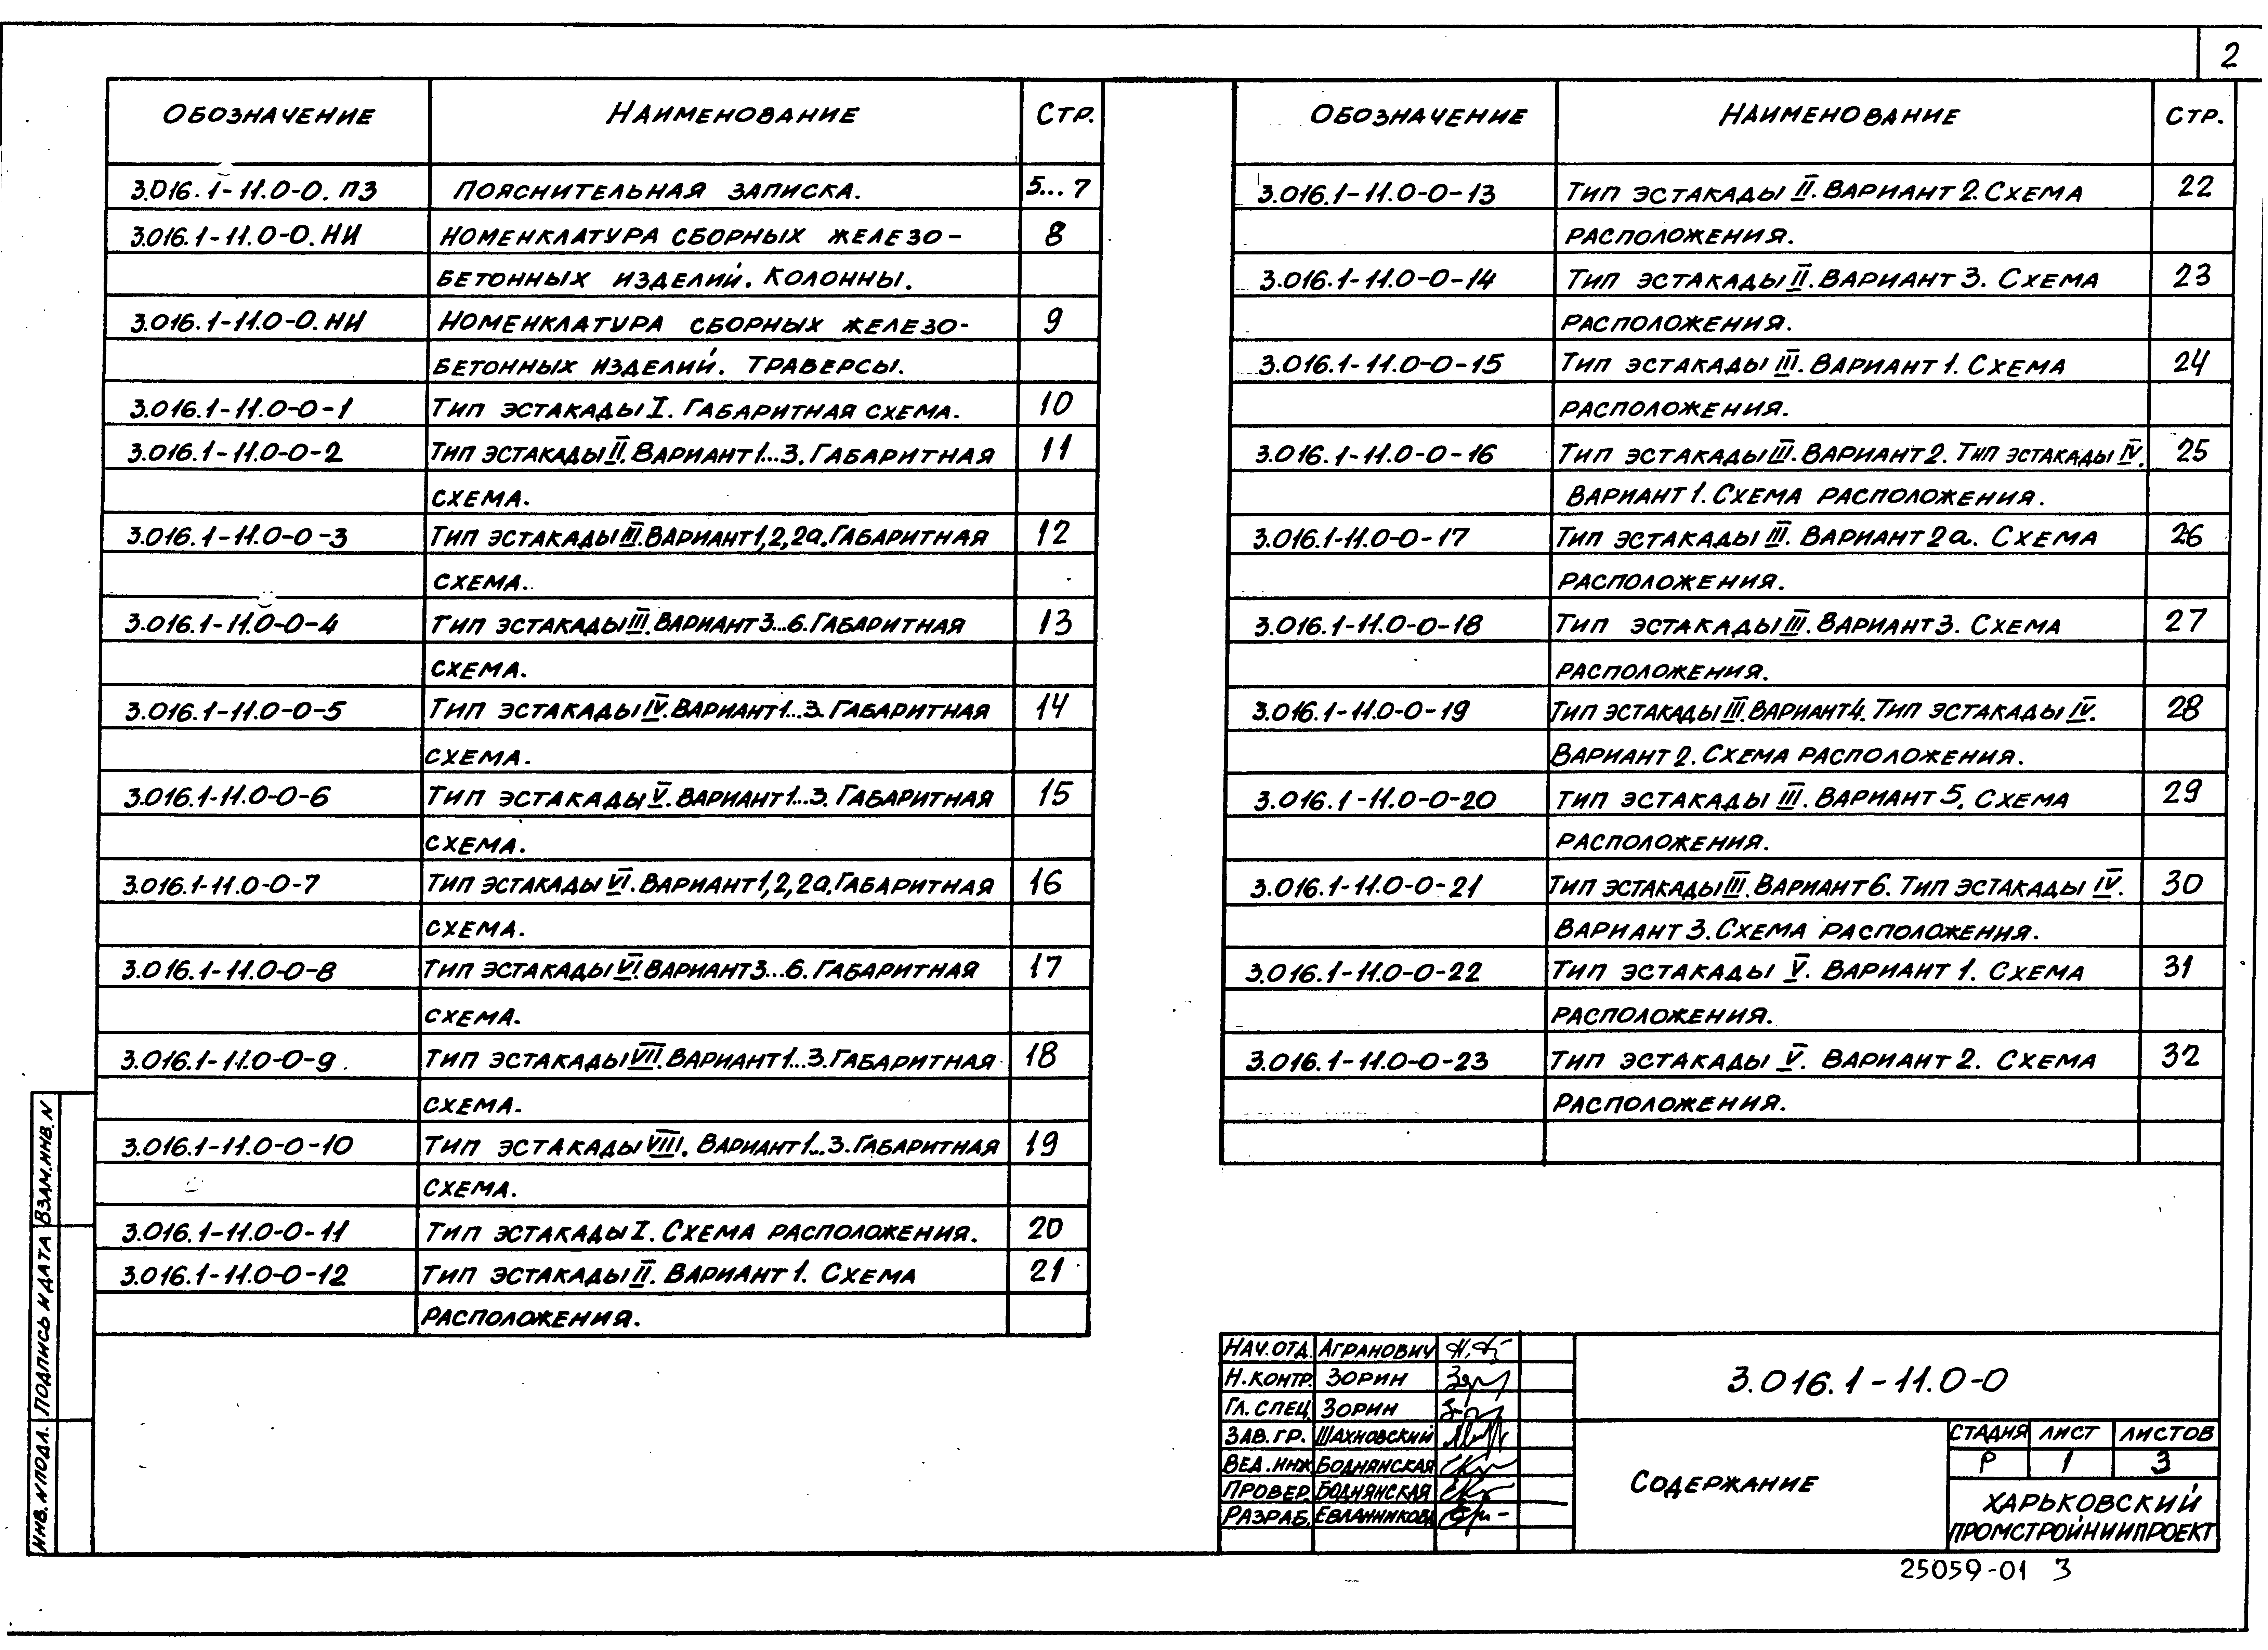 2
Обозначение Наименование Стр.
3.016.1-11.0-0.ПЗ Пояснительная записка. 5...7
3.016.1-11.0-0.НИ Номенклатура сборных железо- 8
бетонных изделий. Колонны.
3.016.1-11.0-0.НИ Номенклатура сборных железо- 9
бетонных изделий. Траверсы.
3.016.1-11.0-0-1 Тип эстакады I. Габаритная схема. 10
3.016.1-11.0-0-2 Тип эстакады II. Вариант 1...3. Габаритная 11
схема.
3.016.1-11.0-0-3 Тип эстакады III. Вариант 1,2,2а. Габаритная 12
схема.
3.016.1-11.0-0-4 Тип эстакады III. Вариант 3...6. Габаритная 13
схема.
3.016.1-11.0-0-5 Тип эстакады IV. Вариант 1...3. Габаритная 14
схема.
3.016.1-11.0-0-6 Тип эстакады V. Вариант 1...3. Габаритная 15
схема.
3.016.1-11.0-0-7 Тип эстакады VI. Вариант 1,2,2а. Габаритная 16
схема.
3.016.1-11.0-0-8 Тип эстакады VI. Вариант 3...6. Габаритная 17
схема.
3.016.1-11.0-0-9 Тип эстакады VII. Вариант 1...3. Габаритная 18
схема.
3.016.1-11.0-0-10 Тип эстакады VIII. Вариант 1...3. Габаритная 19
схема.
3.016.1-11.0-0-11 Тип эстакады I. Схема расположения. 20
3.016.1-11.0-0-12 Тип эстакады II. Вариант 1. Схема 21
расположения.
Обозначение Наименование Стр.
3.016.1-11.0-0-13 Тип эстакады II. Вариант 2. Схема 22
расположения.
3.016.1-11.0-0-14 Тип эстакады II. Вариант 3. Схема 23
расположения.
3.016.1-11.0-0-15 Тип эстакады III. Вариант 1. Схема 24
расположения.
3.016.1-11.0-0-16 Тип эстакады III. Вариант 2. Тип эстакады IV. 25
Вариант 1. Схема расположения.
3.016.1-11.0-0-17 Тип эстакады III. Вариант 2а. Схема 26
расположения.
3.016.1-11.0-0-18 Тип эстакады III. Вариант 3. Схема 27
расположения.
3.016.1-11.0-0-19 Тип эстакады III. Вариант 4. Тип эстакады IV. 28
Вариант 2. Схема расположения.
3.016.1-11.0-0-20 Тип эстакады III. Вариант 5. Схема 29
расположения.
3.016.1-11.0-0-21 Тип эстакады III. Вариант 6. Тип эстакады IV. 30
Вариант 3. Схема расположения.
3.016.1-11.0-0-22 Тип эстакады V. Вариант 1. Схема 31
расположения.
3.016.1-11.0-0-23 Тип эстакады V. Вариант 2. Схема 32
расположения.
Инв. N подл. Подпись и дата Взам. инв. N
Нач. отд. Агранович
Н. контр. Зорин
Гл. спец. Зорин
Зав. гр. Шахновский
Вед. инж. Боднянская
Провер. Боднянская
Разраб. Евланникова
3.016.1-11.0-0
Содержание
Стадия Лист Листов
Р 1 3
Харьковский
Промстройниипроект
25059-01 3